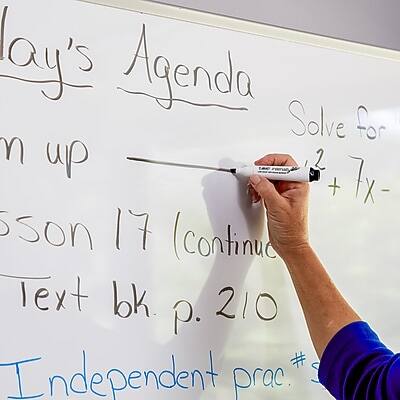 lay's Agenda
m up —
sson 17 (continue
Text bk. p. 210
Independent prac. #
Solve for
² + 7x -